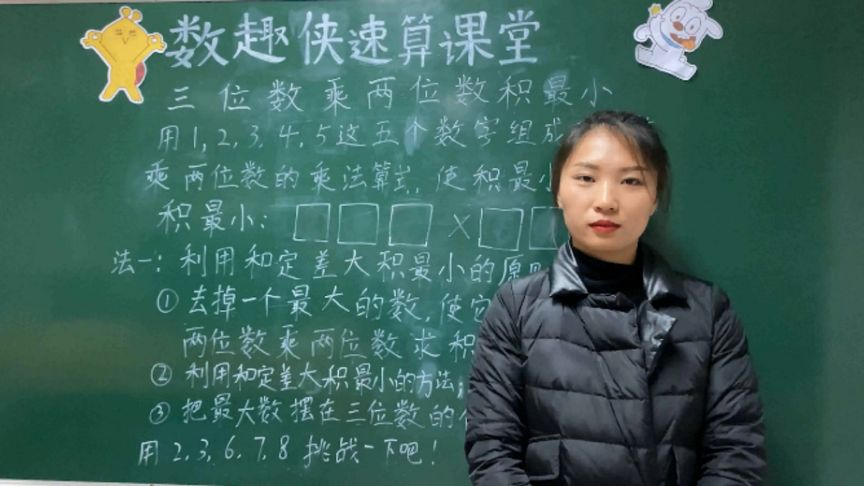 数趣侠速算课堂
三位数乘两位数积最小
用1,2,3,4,5这五个数字组成
乘两位数的乘法算式,使积最小
积最小:□□□×□□
法一:利用和定差大积最小的原则
①去掉一个最大的数,使它
两位数乘两位数求积
②利用和定差大积最小的方法;
③把最大数摆在三位数的
用2,3,6,7,8挑战一下吧!